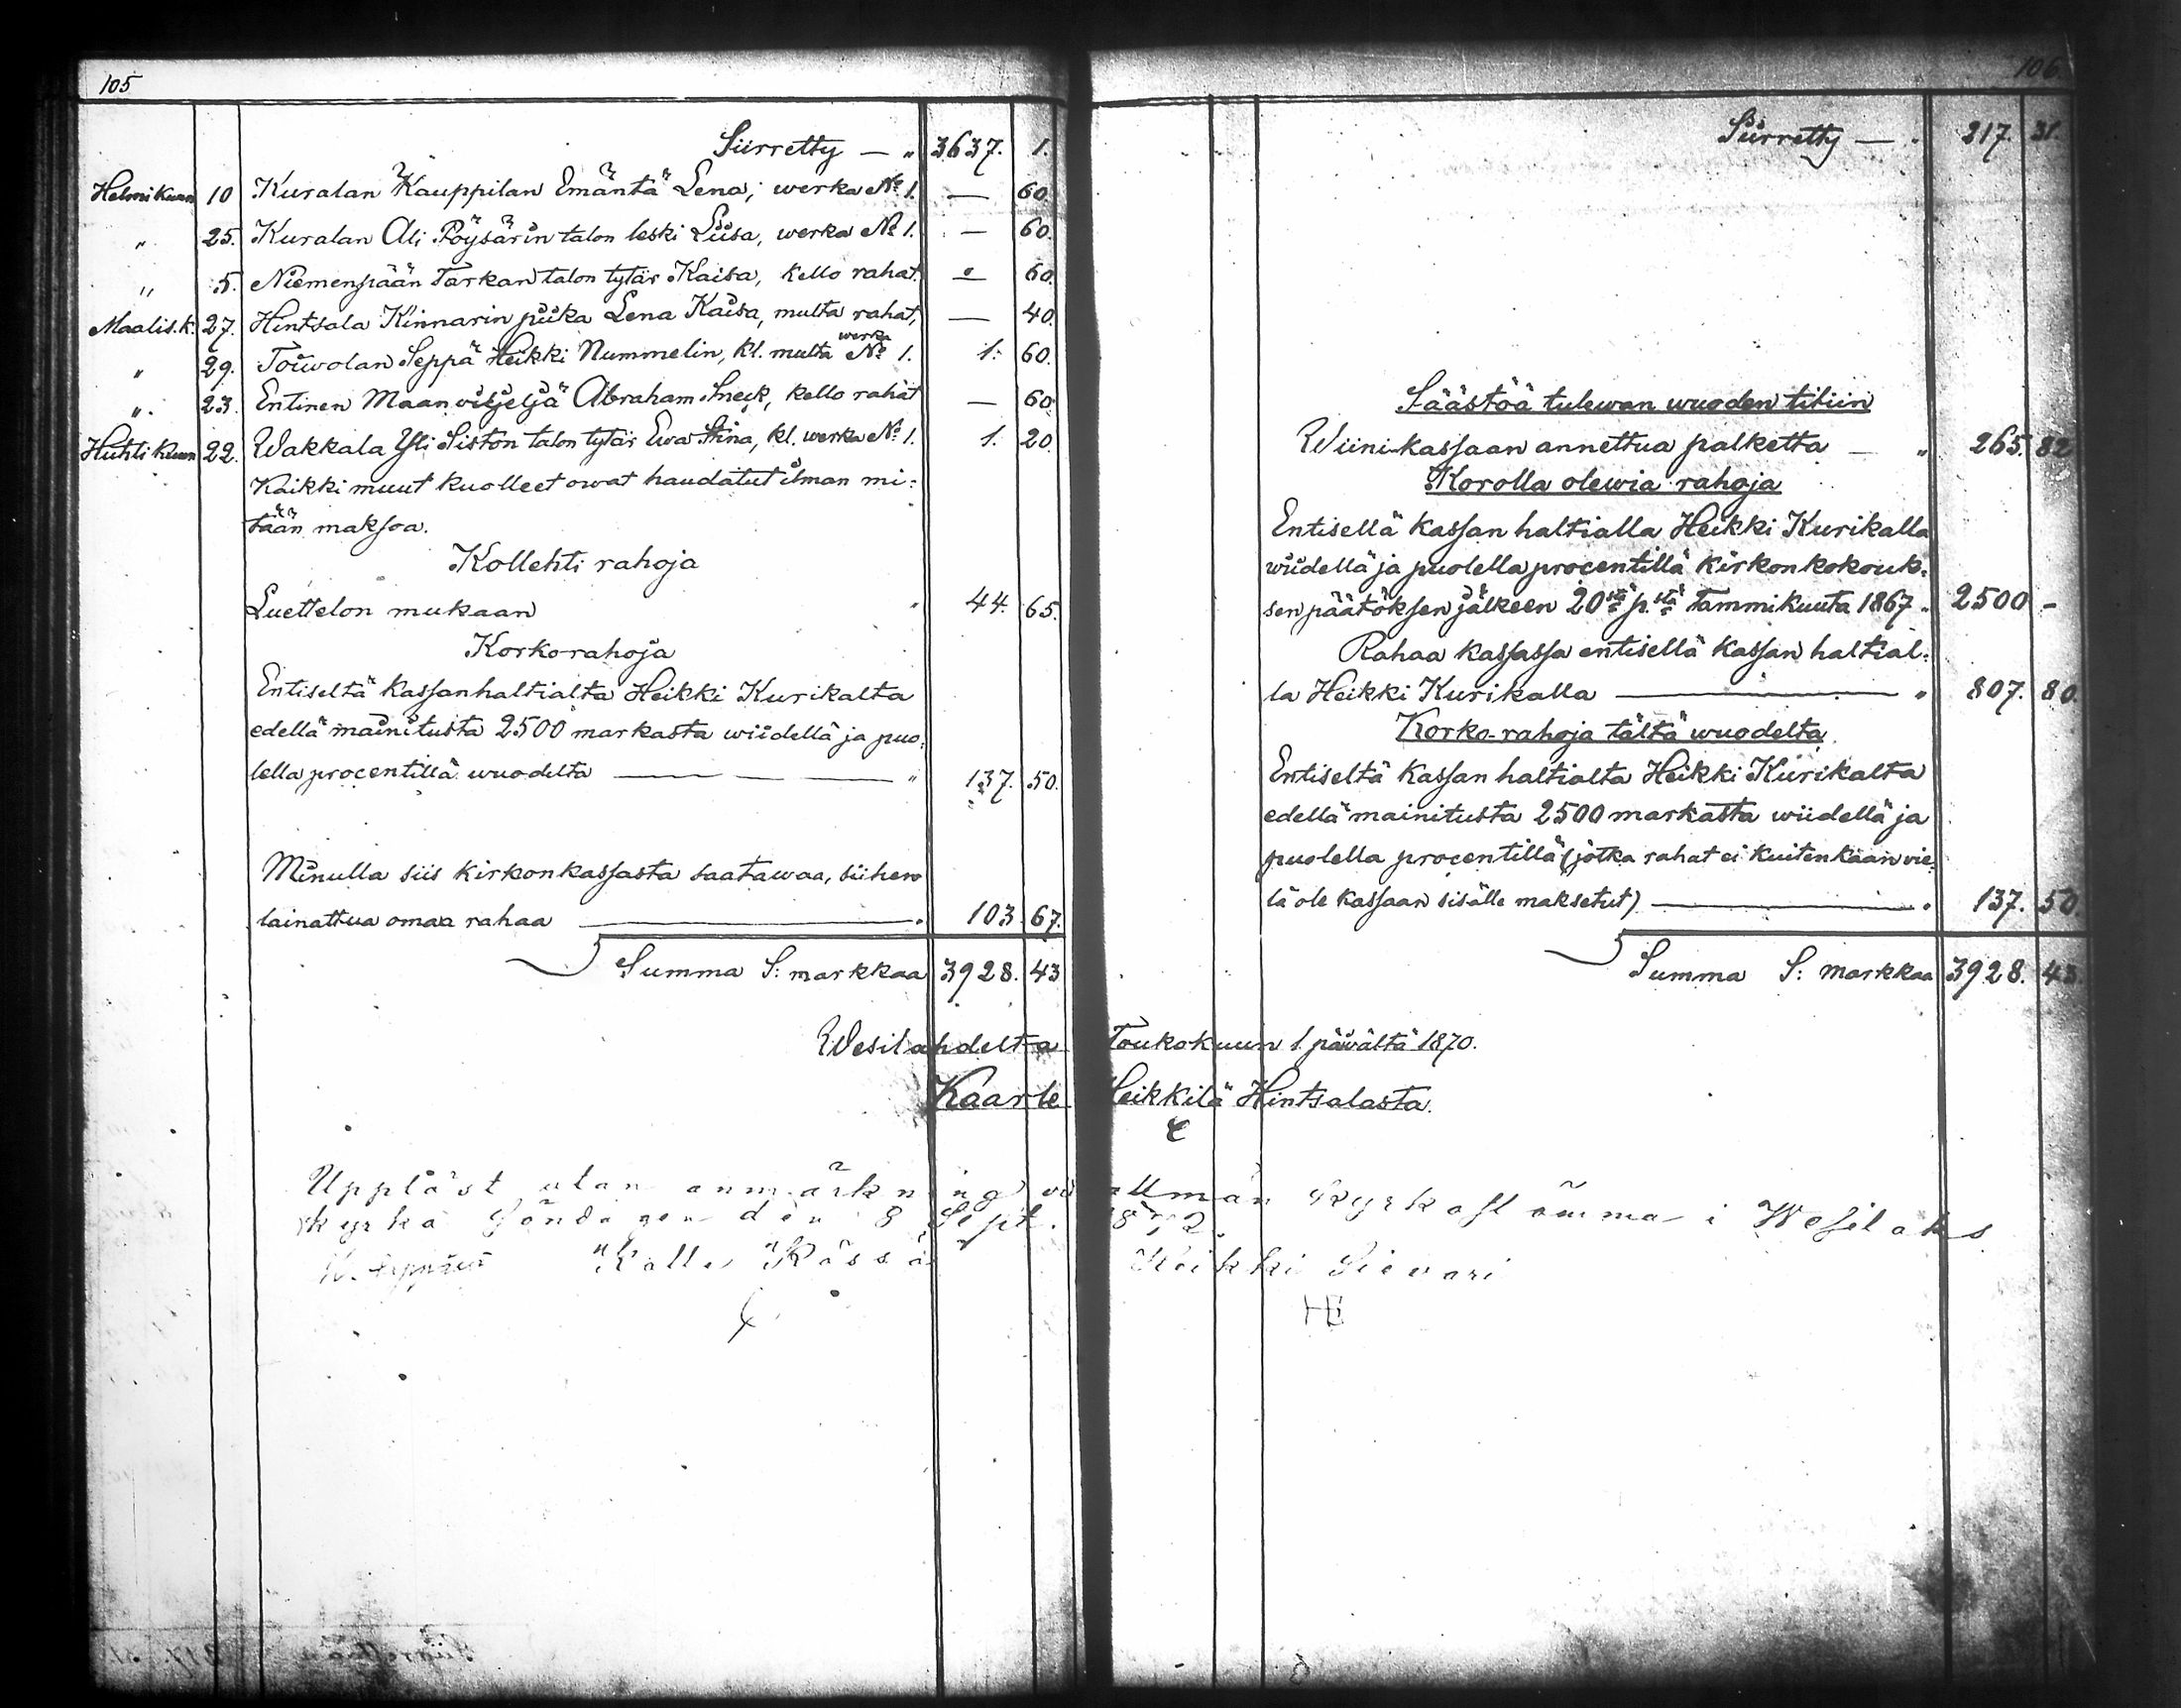 105
Siirretty — „ 3637. 1.
Helmikuun 10 Kuralan Kauppilan Emäntä Lena; werka No 1. — 60.
„ 25. Kuralan Ali Pöysärin talon leski Liisa, werka No 1. — 60.
„ 5. Niemenpään Tarkan talon tytär Kaisa, kello rahat. — 60.
Maalis.k. 27. Hintsala Kinnarin piika Lena Kaisa, multa rahat, — 40.
werka
„ 29. Touwolan Seppä Heikki Nummelin, kl. multa No 1. 1. 60.
„. 23. Entinen Maanviljeljä Abraham Sneck, kello rahat — 60.
Huhtikuun 22. Wakkala Yli Siston talon tytär Ewa Stina, kl. werka No 1. 1. 20.
Kaikki muut kuolleet owat haudatut ilman mi-
tään maksoa.
Kollehti rahoja
Luettelon mukaan „ 44. 65.
Korko-rahoja
Entiseltä kassanhaltialta Heikki Kurikalta
edellä mainitusta 2500 markasta wiidellä ja puo-
lella procentillä wuodelta — „ 137. 50.
Minulla siis kirkonkassasta saatawaa, siihen
lainattua omaa rahaa — „ 103. 67.
Summa S: markkaa 3928. 43
106.
Siirretty — „ 217. 31.
Säästöä tulewan wuoden tiliin
Wiinikassaan annettua palketta — „ 265. 82
Korolla olewia rahoja
Entisellä kassan haltialla Heikki Kurikalla
wiidellä ja puolella procentillä kirkonkokouk-
sen päätöksen jälkeen 20stä p.stä Tammikuuta 1867 „ 2500 –
Rahaa kassassa entisellä kassan haltial-
la Heikki Kurikalla — „ 807. 80.
Korko-rahoja tältä wuodelta
Entiseltä kassan haltialta Heikki Kurikalta
edellä mainitusta 2500 markasta wiidellä ja
puolella procentillä (jotka rahat ei kuitenkaan vie-
lä ole kassaan sisälle maksetut) — „ 137. 50.
Summa S: markkaa 3928. 43.
Wesilahdelta Toukokuun 1 päivältä 1870.
Kaarle Heikkilä Hintsalasta.
Uppläst utan anmärkning vid allmän Kyrkostämma i Wesilaks
kyrka Söndagen den 8 Sept. 1872.
Kalle Kässä Heikki Sievari
HE